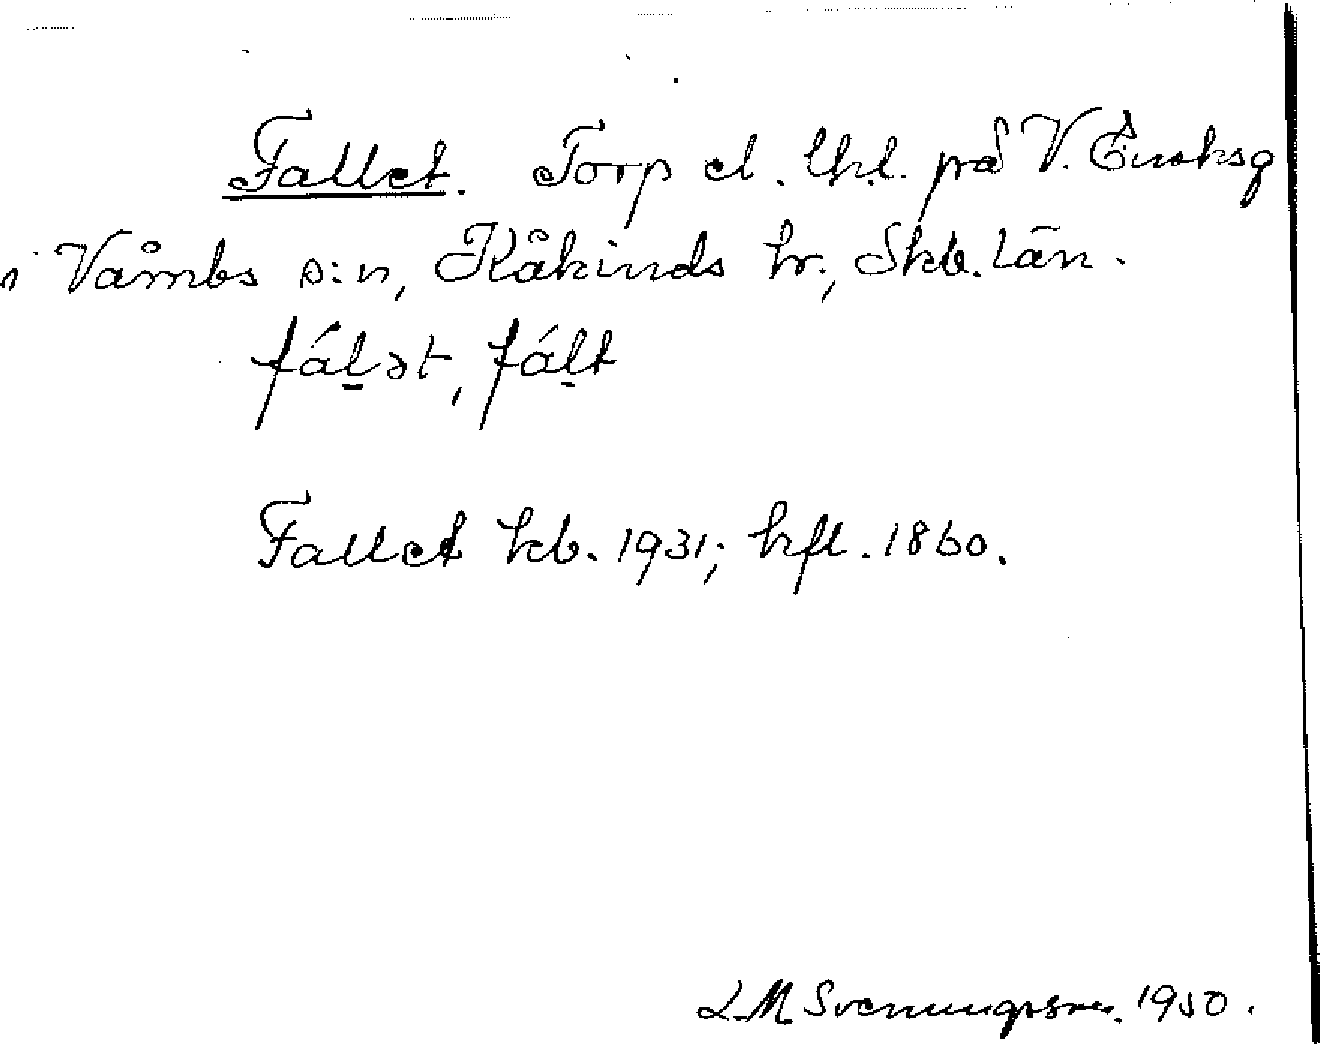 Fallet. Torp el. lht. på V.
i Våmbs s:n, Kåkinds hr., Skb. län.
fáḻət, fáḻt
Fallet kb. 1931; hfl. 1860.
L M Svenungsson. 1950.